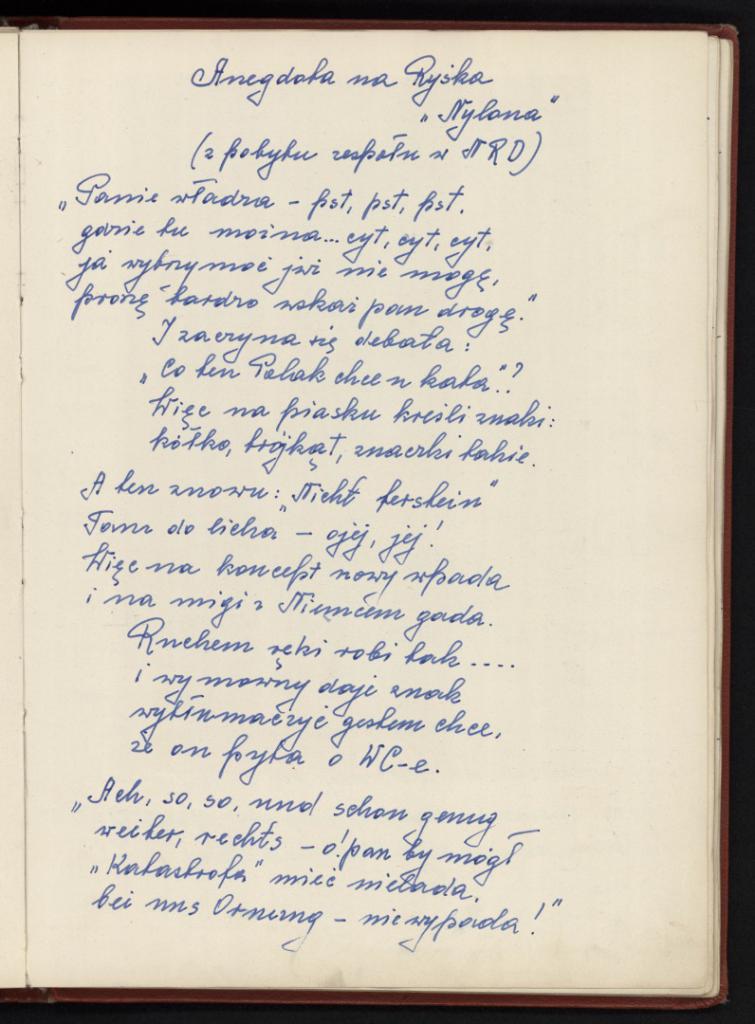 Anegdota na Ryśka
„Nylona"
(z pobytu zespołu w NRD)
„Panie władza – pst, pst, pst.
gdzie tu można... cyt, cyt, cyt,
ja wytrzymać już nie mogę,
proszę bardzo wskaż pan drogę."
I zaczyna się debata:
„Co ten Polak chce u kata"?
Więc na piasku kreśli znaki:
kółko, trójkąt, znaczki takie.
A ten znowu: „Nicht ferstein"
Tam do licha – ojej, jej!
Więc na koncept nowy wpada
i na migi z Niemcem gada.
Ruchem ręki robi tak ....
i wymowny daje znak
wytłumaczyć gestem chce,
że on pyta o WC-e.
„Ach, so, so, und schon genug
weiter, rechts – o! pan by mógł
„Katastrofę" mieć nielada.
bei uns Ornung – nie wypada!"